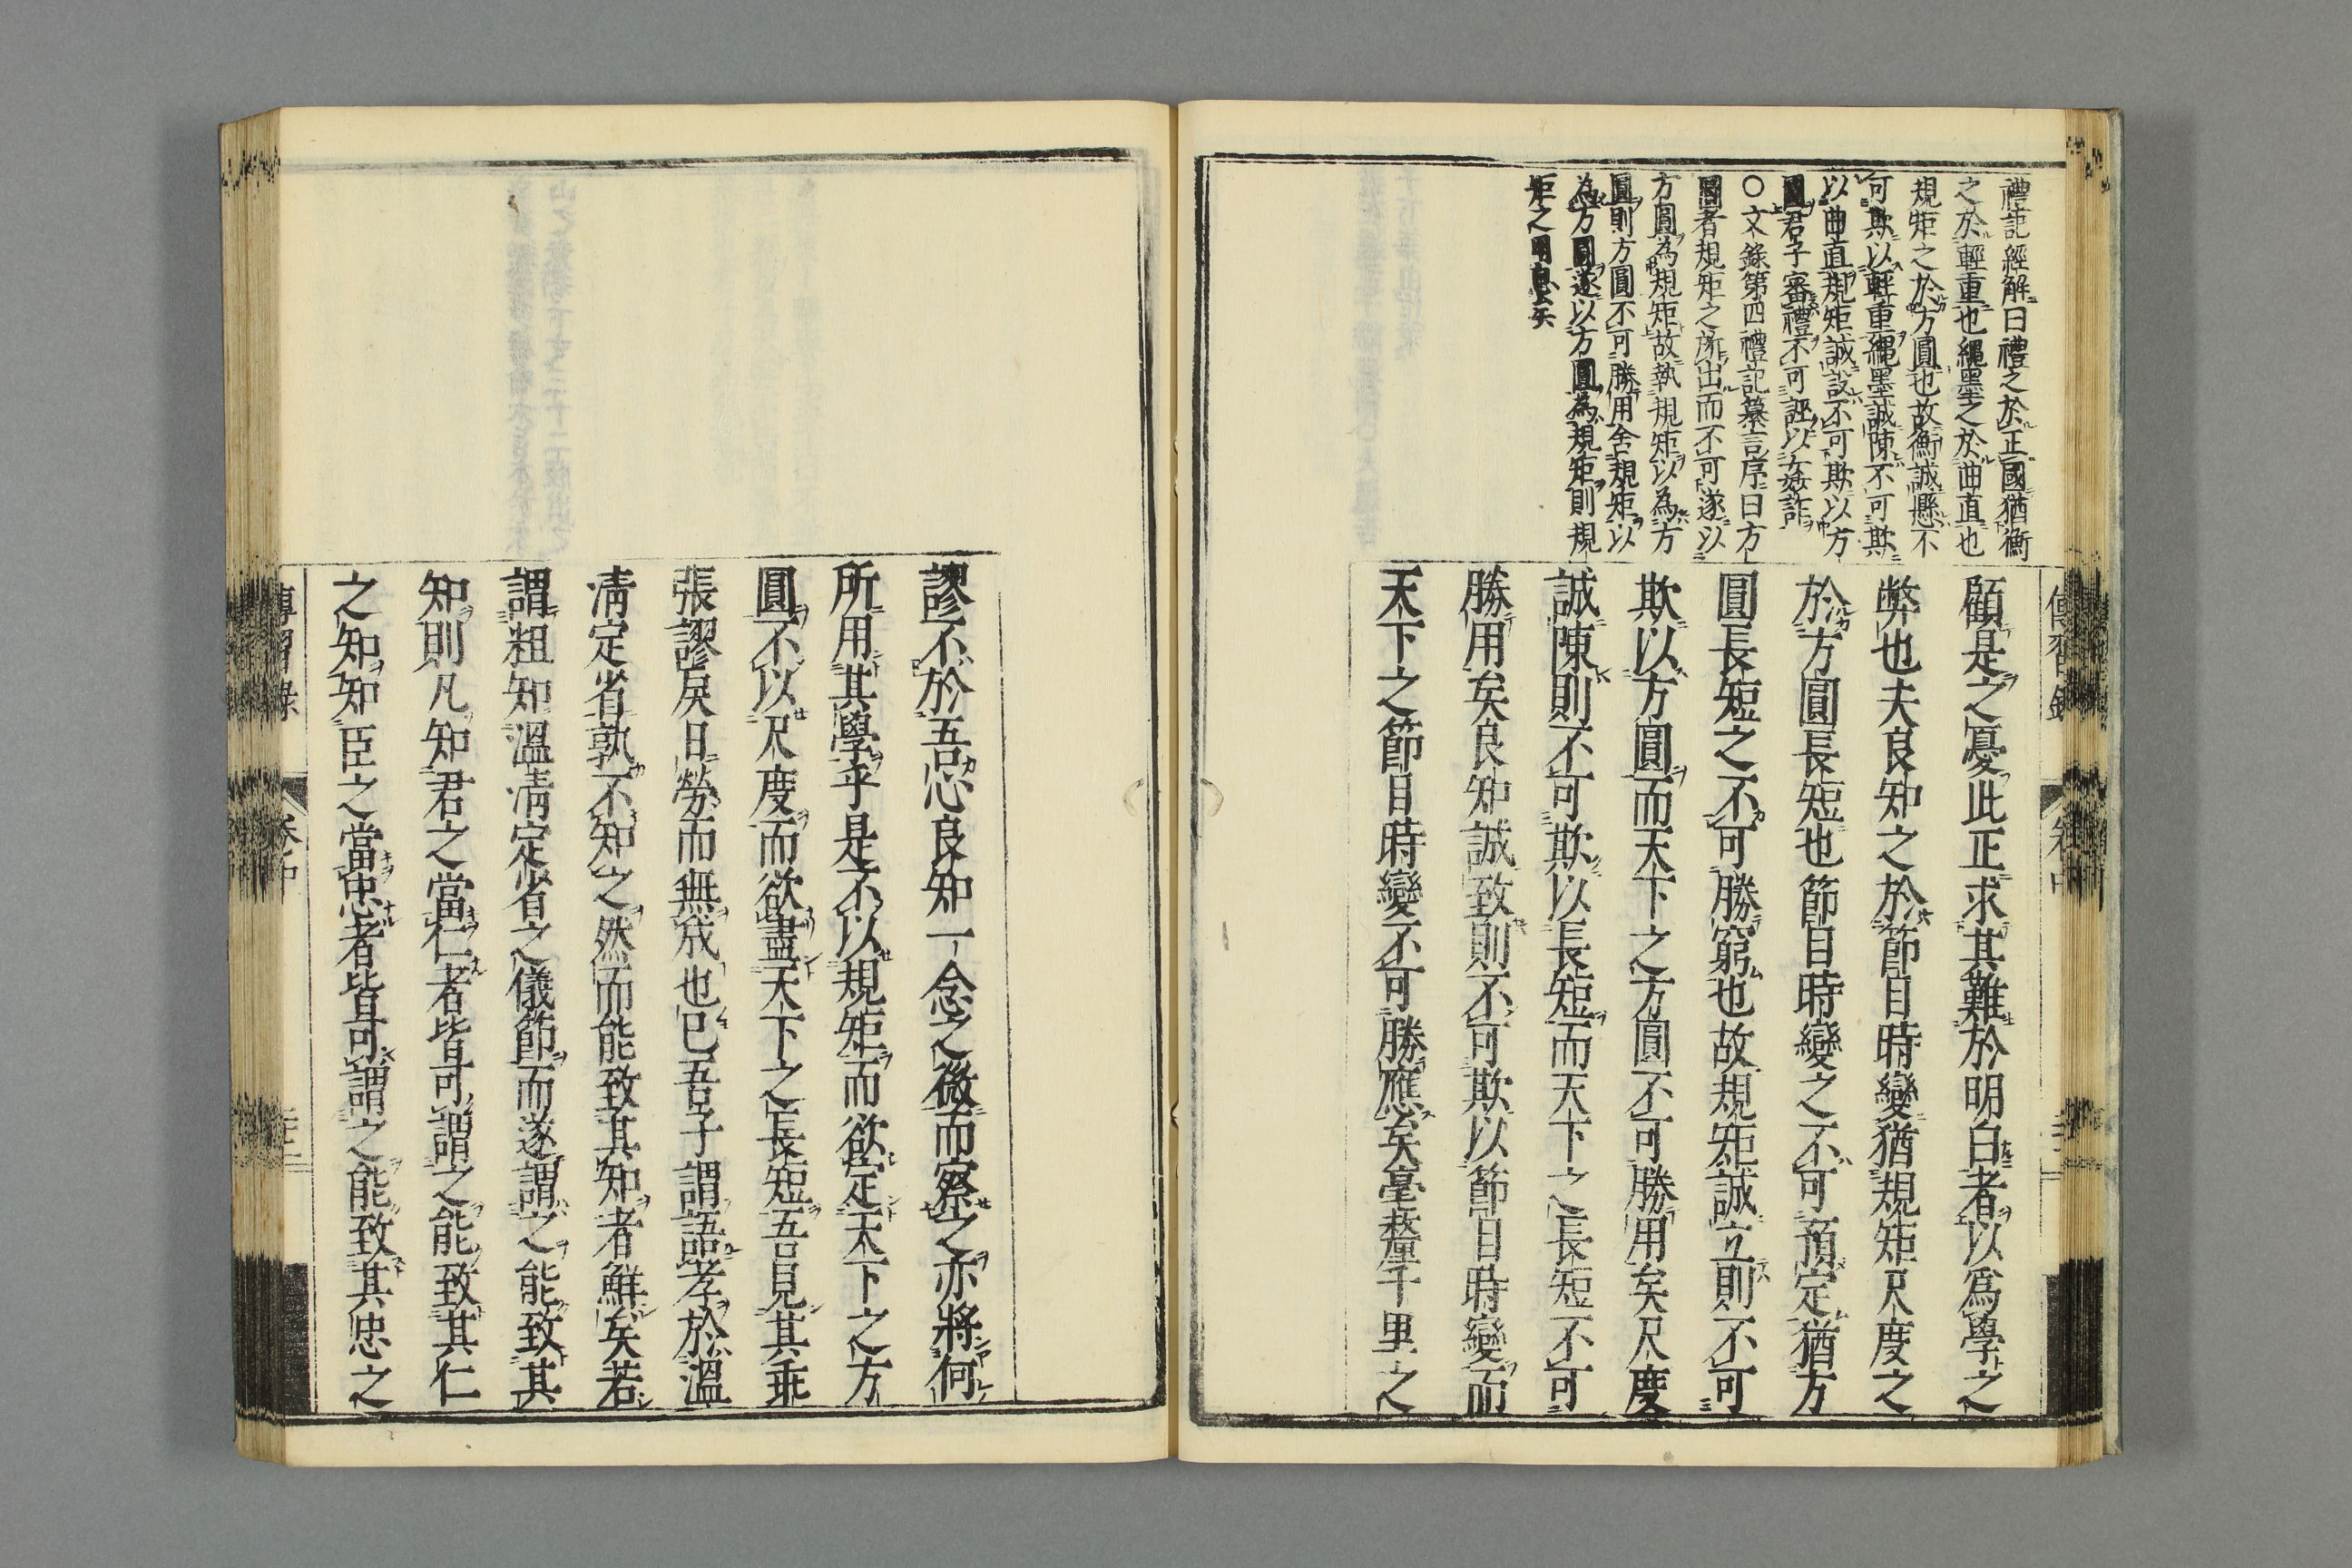 禮記經解曰禮之於正國猶衡
之於輕重也繩墨之於曲直也
規矩之於方圓也故衡誠懸不
可欺以輕重繩墨誠陳不可欺
以曲直規矩誠設不可欺以方
圓君子審禮不可誣以姦詐
○文錄第四禮記纂言序曰方
圓者規矩之所出而不可遂以
方圓為規矩故執規矩以為方
圓則方圓不可勝用舍規矩以
為方圓遂以方圓為規矩則規
矩之用息矣
傳習錄
卷中
顧是之憂此正求其難於明白者以爲學之
弊也夫良知之於節目時變猶規矩尺度之
於方圓長短也節目時變之不可預定猶方
圓長短之不可勝窮也故規矩誠立則不可
欺以方圓而天下之方圓不可勝用矣尺度
誠陳則不可欺以長短而天下之長短不可
勝用矣良知誠致則不可欺以節目時變而
天下之節目時變不可勝應矣毫釐千里之
謬不於吾心良知一念之微而察之亦將何
所用其學乎是不以規矩而欲定天下之方
圓不以尺度而欲盡天下之長短吾見其乖
張謬戾日勞而無成也已吾子謂語孝於溫
凊定省孰不知之然而能致其知者鮮矣若
謂粗知溫凊定省之儀節而遂謂之能致其
知則凡知君之當仁者皆可謂之能致其仁
之知知臣之當忠者皆可謂之能致其忠之
傳習錄
卷中